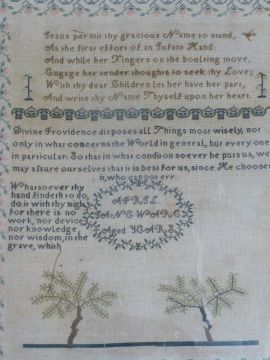 Jesus permit thy gracious Name to stand,
As the first effort of an Infant Hand.
And while her Fingers on the move,
Engage her tender thoughts to seek thy Love;
With thy dear Children let her have part,
And write thy Name Thyself upon her heart.
Divine Providence disposes all Things most wisely, not
only in what concerns the World in general, but every one
in particular: So that in what condition soever he puts us, we
may assure ourselves that it is best for us, since He chooses
it, who cannot err.
Whatsoever thy
hand findeth to do,
do it with thy
for there is no
work, nor device
nor knowledge,
nor wisdom, in the
grave, which
APRIL
JANE
Aged YEARS